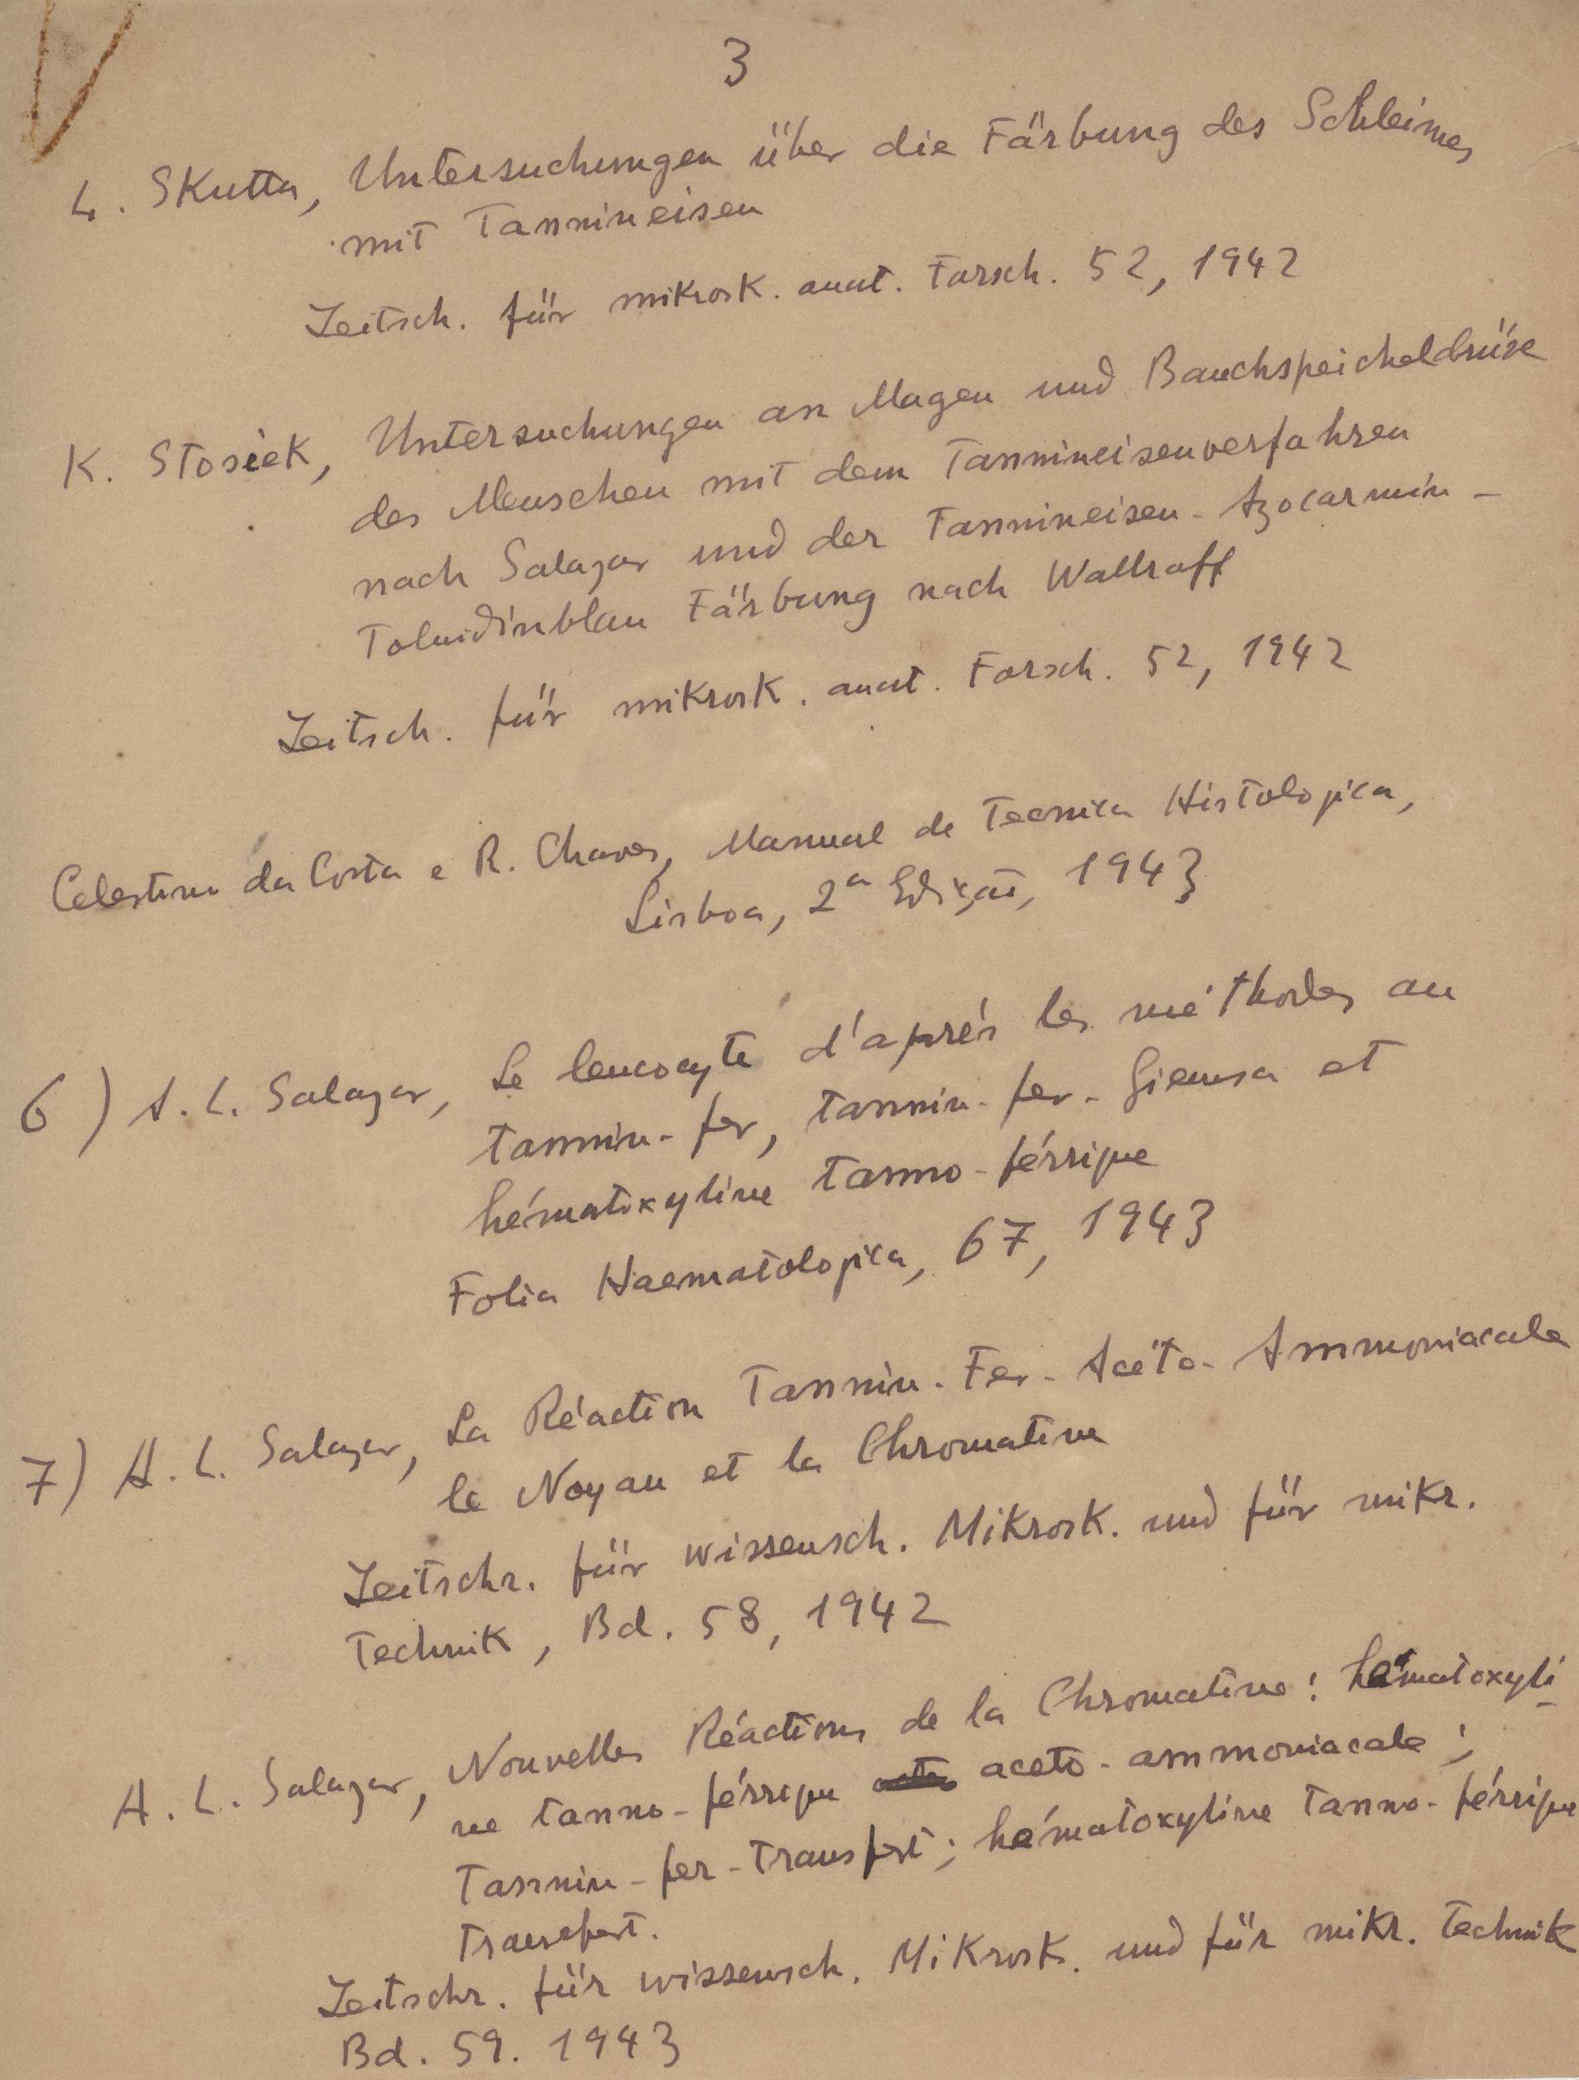 3
L. Skutta, Untersuchungen über die Färbung des Schleimes
mit Tannineisen
Zeitsch. für mikrosk. anat. Forsch. 52, 1942
K. Stosiek, Untersuchungen an Magen und Bauchspeicheldrüse
des Menschen mit dem Tannineisenverfahren
nach Salazar und der Tannineisen-Azocarmin-
Toluidinblau Färbung nach Wallraff
Zeitsch. für mikrosk. anat. Forsch. 52, 1942
Celestino da Costa e R. Chaves, Manual de Tecnica Histologica,
Lisboa, 2ª Edição, 1943
6) A. L. Salazar, Le leucocyte d'aprés les méthodes au
tannin-fer, tannin-fer-Giemsa et
hématoxyline tanno-férrique
Folia Haematologica, 67, 1943
7) A. L. Salazar, La Réaction Tannin-Fer-Acéto-Ammoniacale
le Noyau et la Chromatine
Zeitschr. für wissensch. Mikrosk. und für mikr.
Technik, Bd. 58, 1942
A. L. Salazar, Nouvelles Réactions de la Chromatine: hématoxyli-
ne tanno-férrique aceto-ammoniacale;
Tannin-fer-transfert; hématoxyline tanno-férrique
transfert.
Zeitschr. für wissensch. Mikrosk. und für mikr. Technik
Bd. 59. 1943